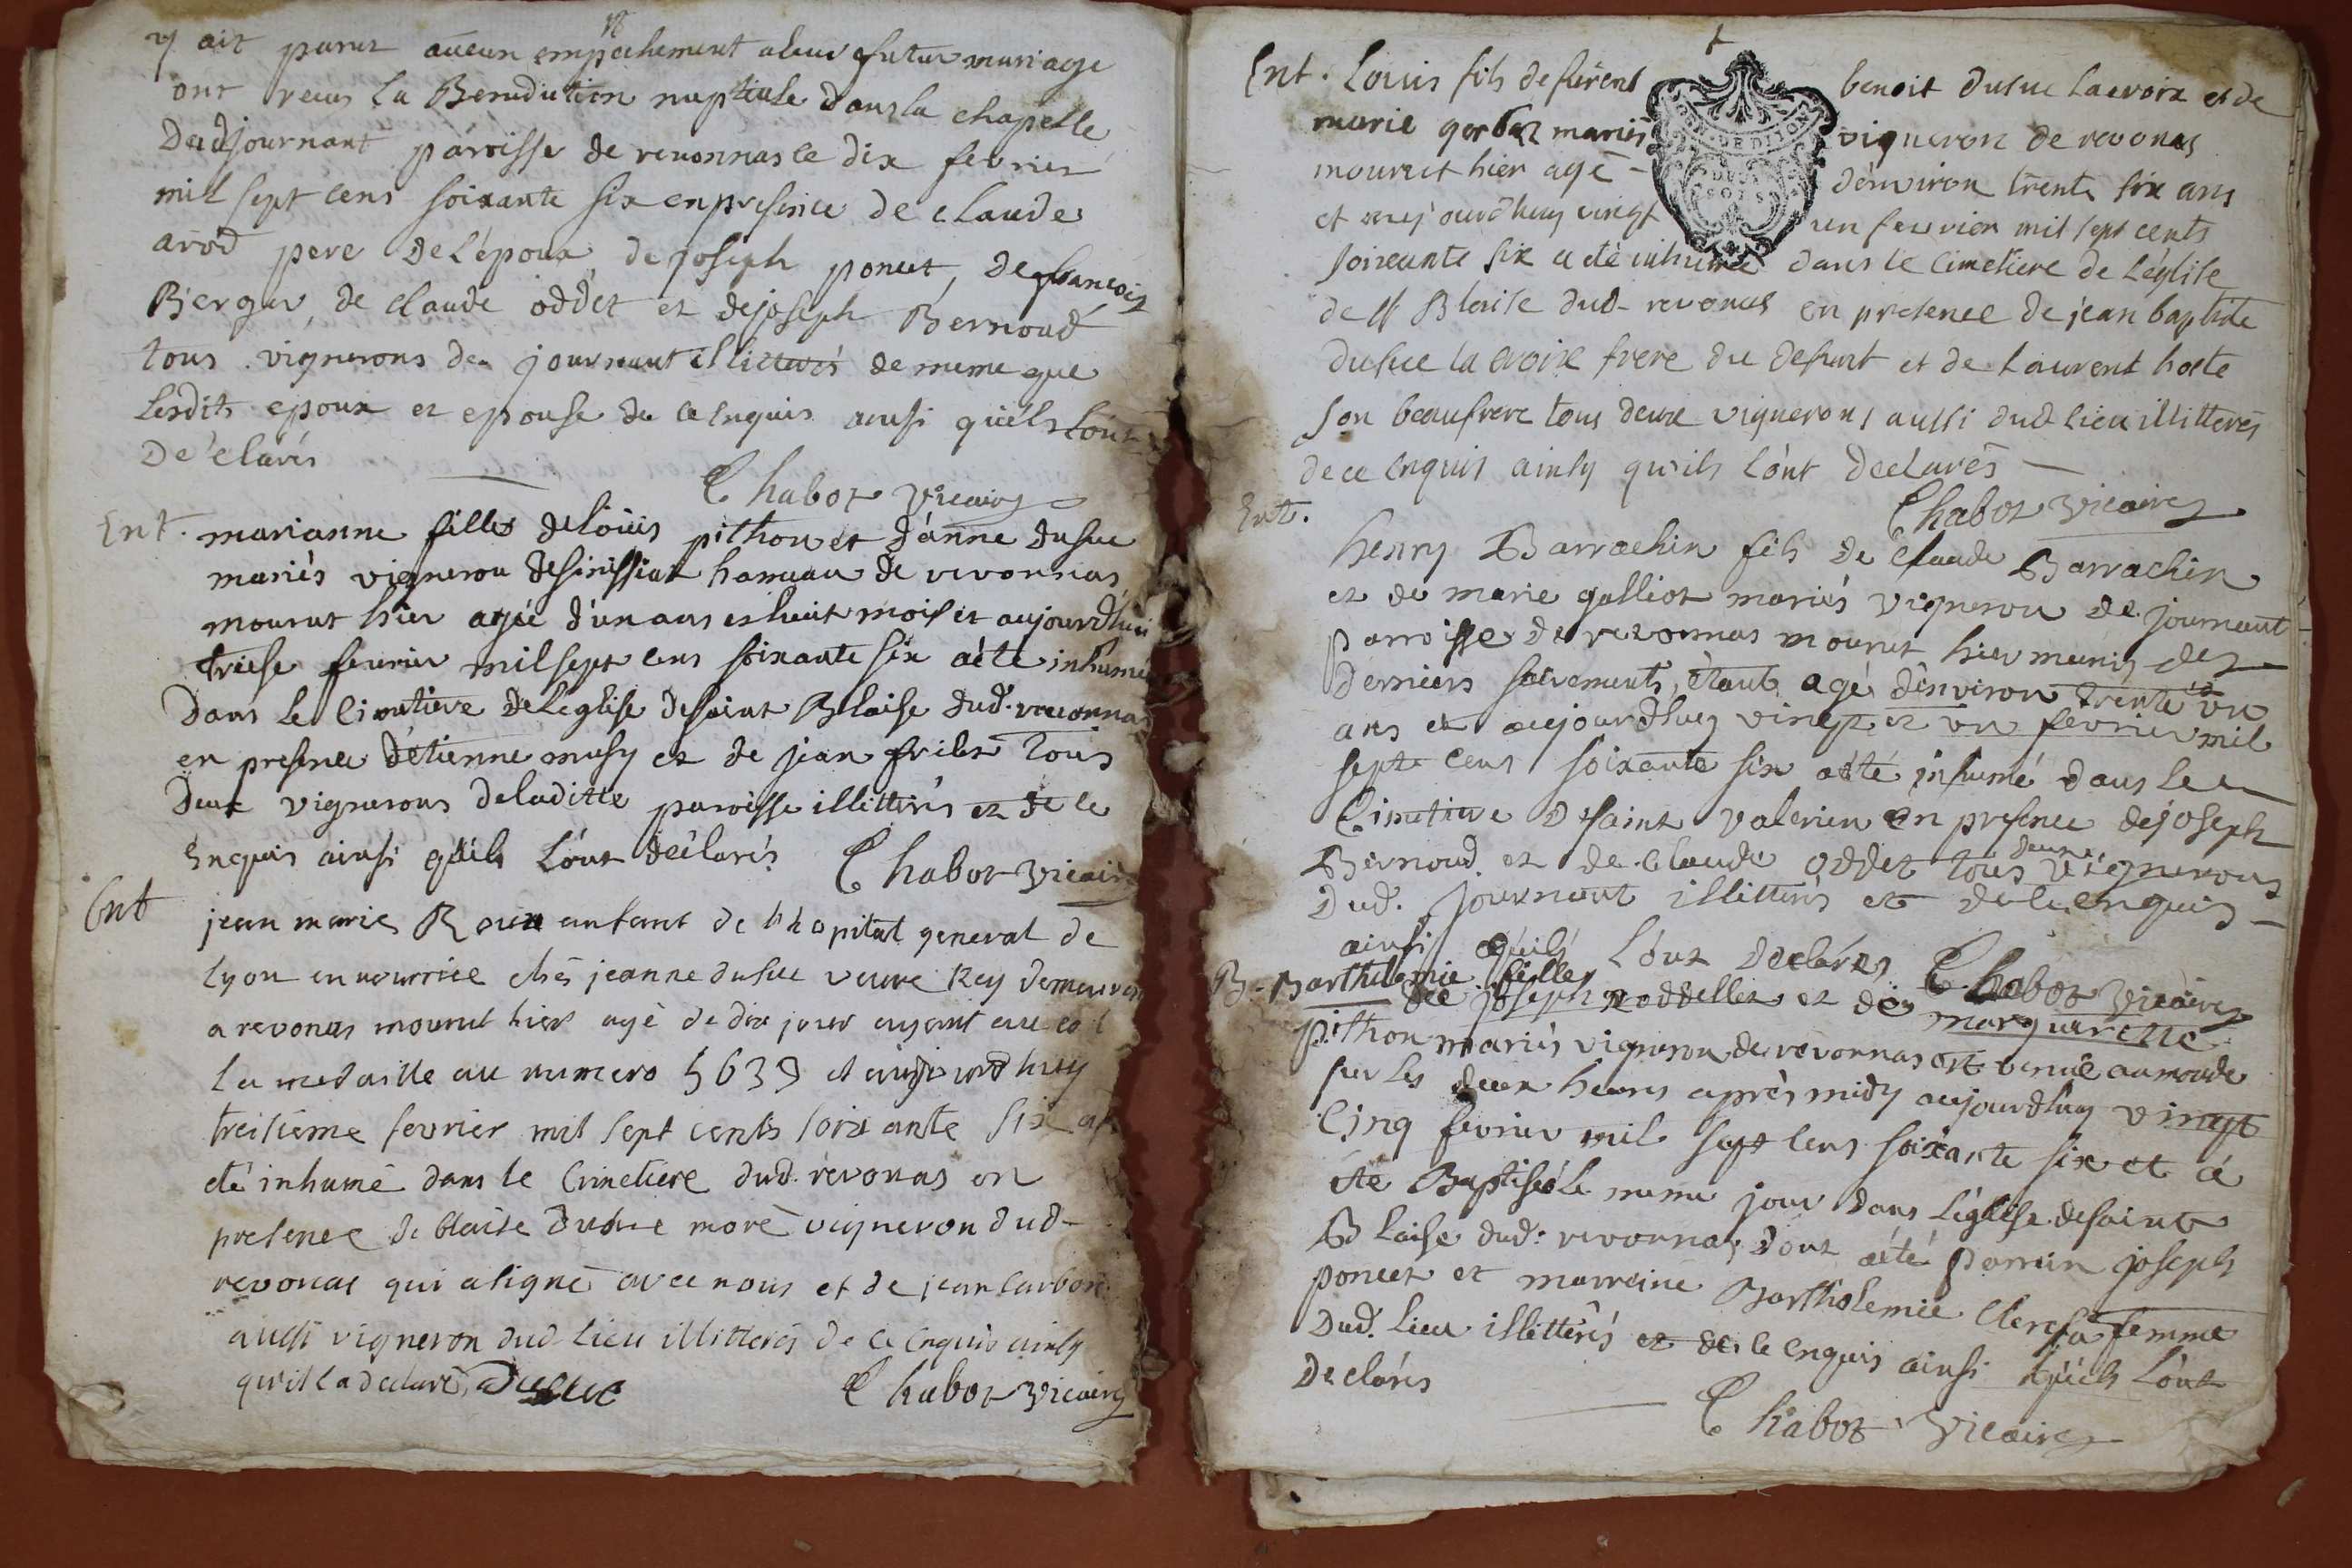 y ait parut aucun empechement a leur futur mariage
ont recus la Benediction nuptiale dans la chapelle
dud journant paroisse de revonnas le dix fevrier
mil sept cens soixante six en presence de claude
arod pere de l'époux de joseph poncet, de francois
Berger, de claude oddet et de joseph Bernoud
tous vignerons de journant illitterés de meme que
lesdits epoux et epouse de ce enquis ainsi quils l'ont
déclarés
Chabot vicaire
Ent. marianne fille de loüis pithon et d'anne dusuc
mariés vigneron de sinissiat hameau de revonnas
mourut hier agée d'un ans et huit mois et aujourdhui
treise fevrier mil sept cens soixante six a été inhumée
dans le cimetiere de leglise de saint Blaise dud. revonnas
en presence d'etienne musy et de jean frilet tous
deux vignerons de laditte paroisse illitterés et de ce
enquis ainsi quils l'ont déclarés Chabot vicaire
Ent
jean marie Roux enfant de l'hopital general de
lyon en nourrice chés jeanne dusuc veuve Rey demeurant
a revonas mourut hier agé de dix jour ayant au col
la medaille au numero 5639 et aujourdhuy
treisieme fevrier mil sept cents soixante six a
eté inhumé dans le Cimetiere dud. revonas en
presence de blaise dusuc moré vigneron dud-
revonas qui a signé avec nous et de jean carbon
aussi vigneron dud lieu illitterés de ce enquis ainsy
qu'il l a declaré, dusuc Chabot vicaire
Ent. Louis fils deferent benoit dusuc lacroix et de
marie gerbaz mariés vigneron de revonas
mourut hier agé - d'environ trente six ans
et aujourdhuy vingt un fevrier mil sept cents
soixante six a eté inhumé dans le cimetiere de l'église
de st Blaise dud- revonas en presence de jean baptiste
dusuc la croix frere du defunt et de laurent hoste
son beaufrere tous deux vignerons aussi dud lieu illitterés
de ce enquis ainsy qu'ils l'ont declarés -
Chabot vicaire
Ent.
henry Barrachin fils de claude Barrachin
et de marie galliot mariés vigneron de journant
parroisse de revonnas mourut hier munis des
derniers sacrements, étant agé d'environ trente un
ans et aujourdhuy vingt et un fevrier mil
sept cens soixante six a été inhumé dans le
Cimetiere de saint valerien en presence de joseph
Bernoud et de claude oddet tous deux vignerons
dud. journant illitterés et de ce enquis -
ainsi quils l'ont declarés Chabot vicaire
B- Barthelemie fille
de joseph noddellet et de marguerette
pithon mariés vigneron de revonnas est venuë au monde
sur les deux heures après midy aujourdhuy vingt
cinq fevrier mil sept cens soixante six et a
été Baptisée le meme jour dans l'église de saint
Blaise dud. revonnas, dont a été parrain joseph
poncet et marreine Barthelemie Clerc sa femme
dud. lieu illitterés et de ce enquis ainsi quils l'ont
declarés
Chabot Vicaire